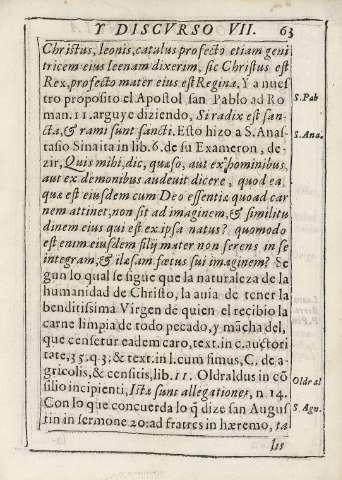 Y DISCVRSO VII. 63
Christus, leonis, catulus profecto etiam geni
tricem eius leenam dixerim, sic Christus est
Rex, profecto mater eius est Regina, Y a nues
tro proposito el Apostol san Pablo ad Ro S. Pab
man. 11. arguye diziendo, Si radix est san-
cta, & rami sunt sancti. Esto hizo a S. Anas S. Ana.
tasio Sinaita in lib. 6. de su Exameron, de-
zir, Quis mihi, dic, quæso, aut ex hominibus,
aut ex demonibus audeuit dicere, quod ea,
quæ est eiusdem cum Deo essentiæ quoad car
nem attinet, non sit ad imaginem, & similitu
dinem eius qui est ex ipsa natus? quomodo
est enim eiusdem filij mater non ferens in se
integram, & illæsam fœtus sui imaginem? Se
gun lo qual se sigue que la naturaleza de la
humanidad de Christo, la auia de tener la
benditissima Virgen de quien el recibio la
carne limpia de todo pecado, y mãcha del,
que censetur eadem caro, text. in c. auctori
tate, 35. q. 3. & text. in l. cum simus, C. de a-
gricolis, & censitis, lib. 11. Oldraldus in cõ
silio incipienti, Istæ sunt allegationes, n. 14. Oldral
Con lo que concuerda lo q̃ dize san Augus S. Agu.
tin in sermone 20. ad fratres in hæremo, ta
lis